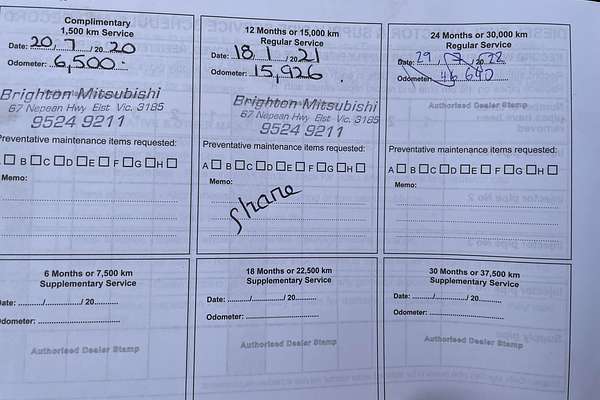 Complimentary
1,500 km Service
Date: 20 / 7 / 20 20
Odometer: 6,500
Brighton Mitsubishi
67 Nepean Hwy Elst Vic. 3185
9524 9211
Preventative maintenance items requested:
A B C D E F G H
Memo:
12 Months or 15,000 km
Regular Service
Date: 18 / 1 / 20 21
Odometer: 15,926
Brighton Mitsubishi
67 Nepean Hwy Elst Vic. 3185
9524 9211
Preventative maintenance items requested:
A B C D E F G H
Memo:
Shane
24 Months or 30,000 km
Regular Service
Date: 29 / 7 / 20 22
Odometer:
Authorised Dealer Stamp
Preventative maintenance items requested:
A B C D E F G H
Memo:
6 Months or 7,500 km
Supplementary Service
Date: / / 20
Odometer:
Authorised Dealer Stamp
18 Months or 22,500 km
Supplementary Service
Date: / / 20
Odometer:
Authorised Dealer Stamp
30 Months or 37,500 km
Supplementary Service
Date: / / 20
Odometer:
Authorised Dealer Stamp